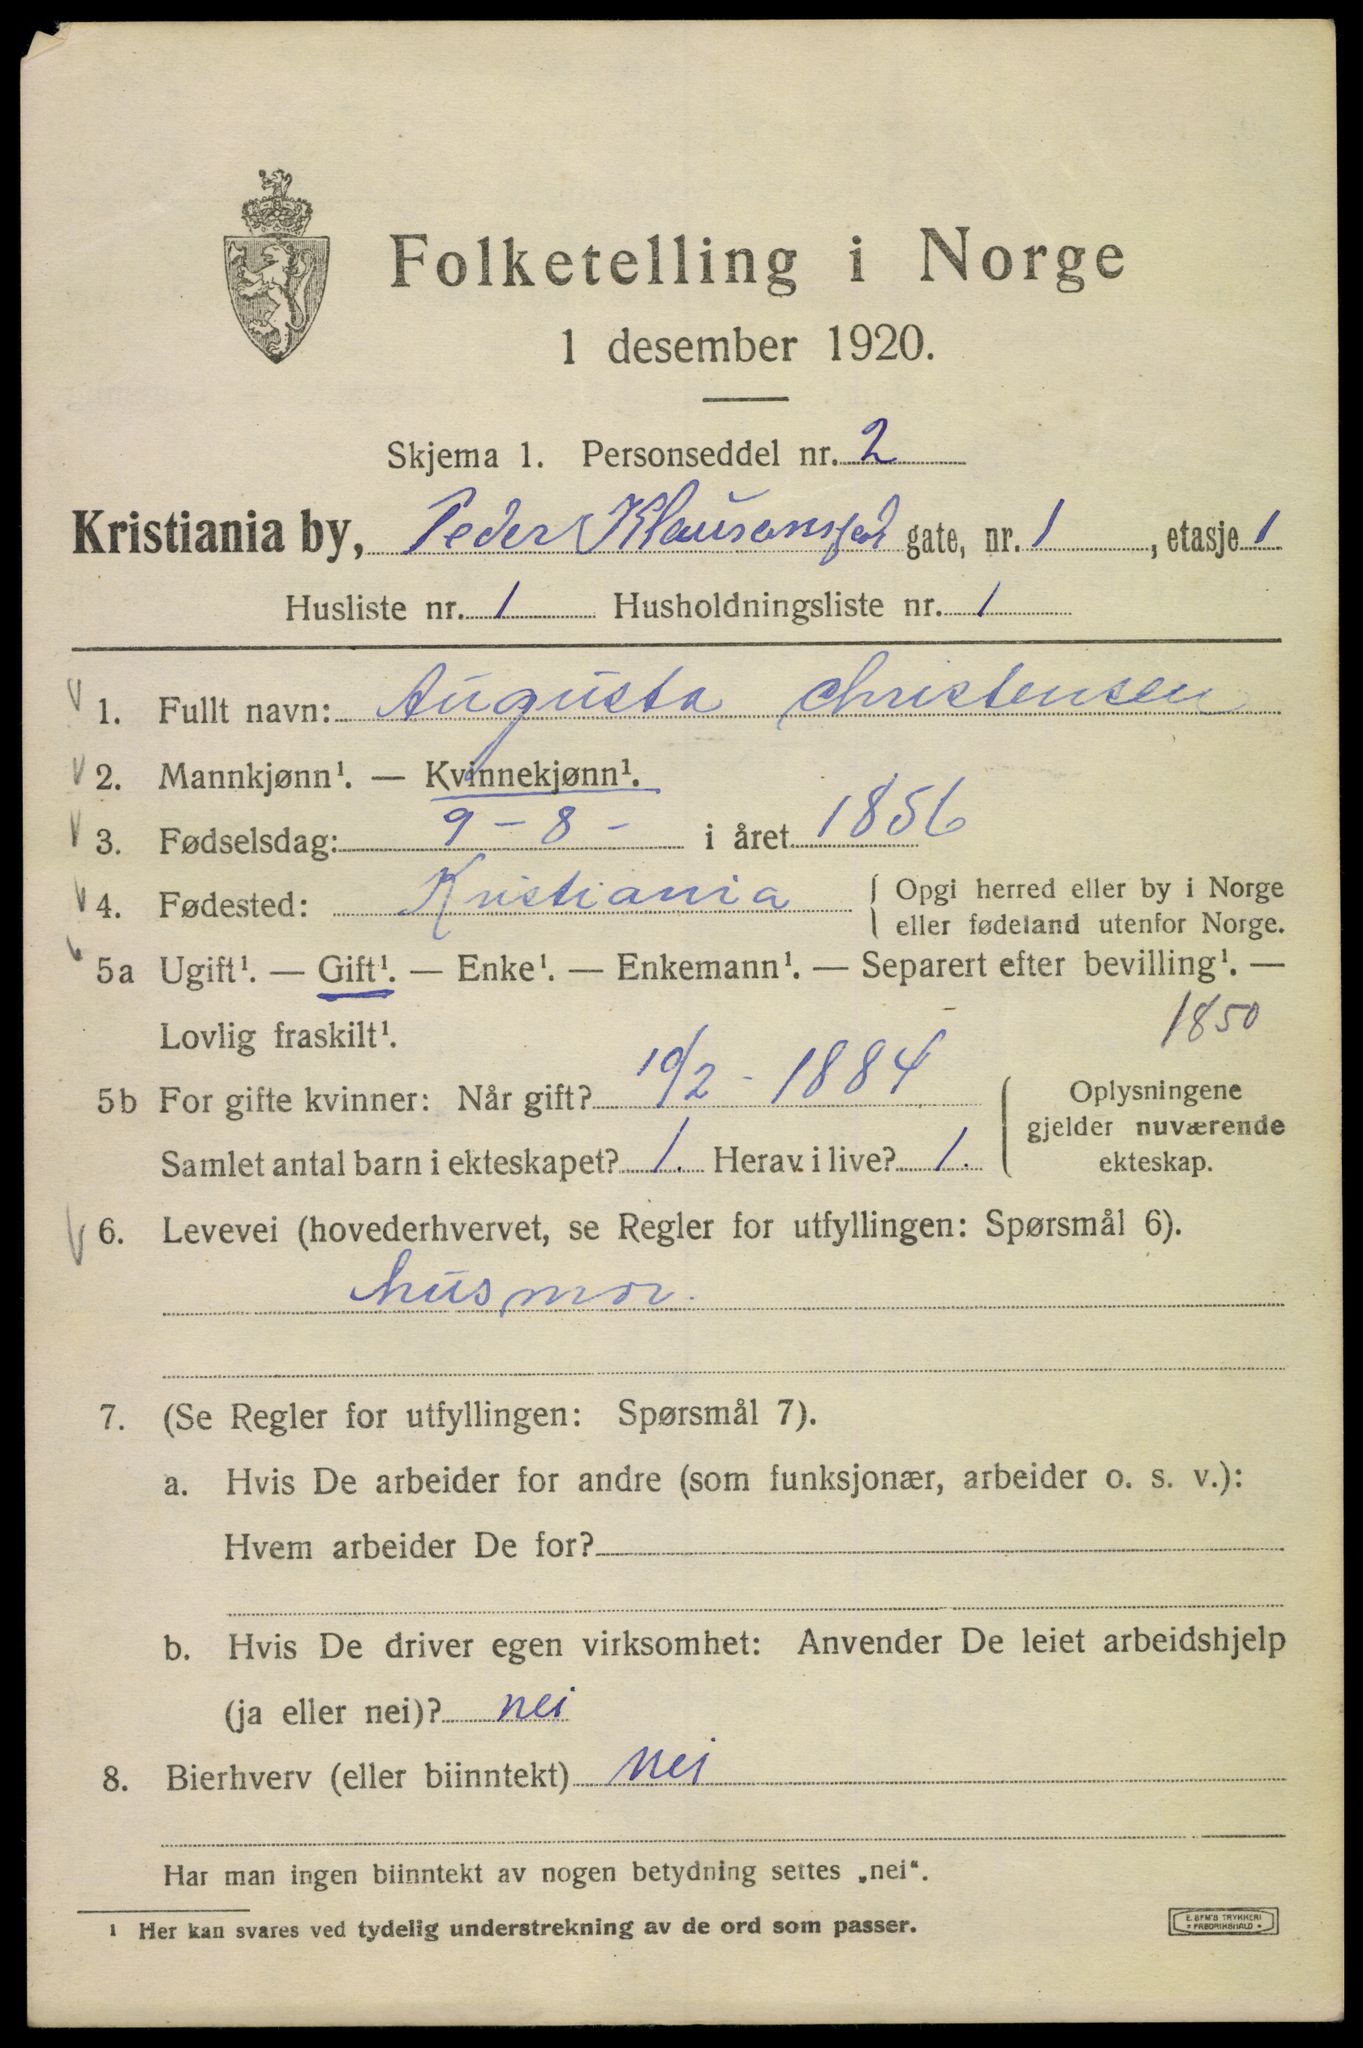 Folketelling i Norge
1 desember 1920.
Skjema 1. Personseddel nr. 2
Kristiania by, Peder Klausøns gate, nr. 1, etasje 1
Husliste nr. 1 Husholdningsliste nr. 1
1. Fullt navn: Augusta Christensen
2. Mannkjønn¹. — Kvinnekjønn¹.
3. Fødselsdag: 9 - 8 - i året 1856
4. Fødested: Kristiania { Opgi herred eller by i Norge
eller fødeland utenfor Norge.
5a Ugift¹. — Gift¹. — Enke¹. — Enkemann¹. — Separert efter bevilling¹. —
Lovlig fraskilt¹. 1850
5b For gifte kvinner: Når gift? 10/2 - 1884
Samlet antal barn i ekteskapet? 1. Herav i live? 1.
Oplysningene
gjelder nuværende
ekteskap.
6. Levevei (hovederhvervet, se Regler for utfyllingen: Spørsmål 6).
husmor.
7. (Se Regler for utfyllingen: Spørsmål 7).
a. Hvis De arbeider for andre (som funksjonær, arbeider o. s. v.):
Hvem arbeider De for?
b. Hvis De driver egen virksomhet: Anvender De leiet arbeidshjelp
(ja eller nei)? nei
8. Bierhverv (eller biinntekt) nei
Har man ingen biinntekt av nogen betydning settes „nei“.
¹ Her kan svares ved tydelig understrekning av de ord som passer.
E. SEM'S TRYKKERI
* FREDRIKSHALD *